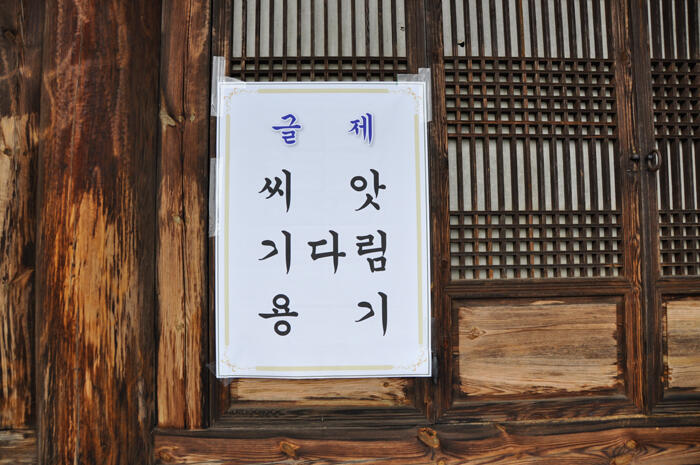 글 제
씨 앗
기다림
용 기